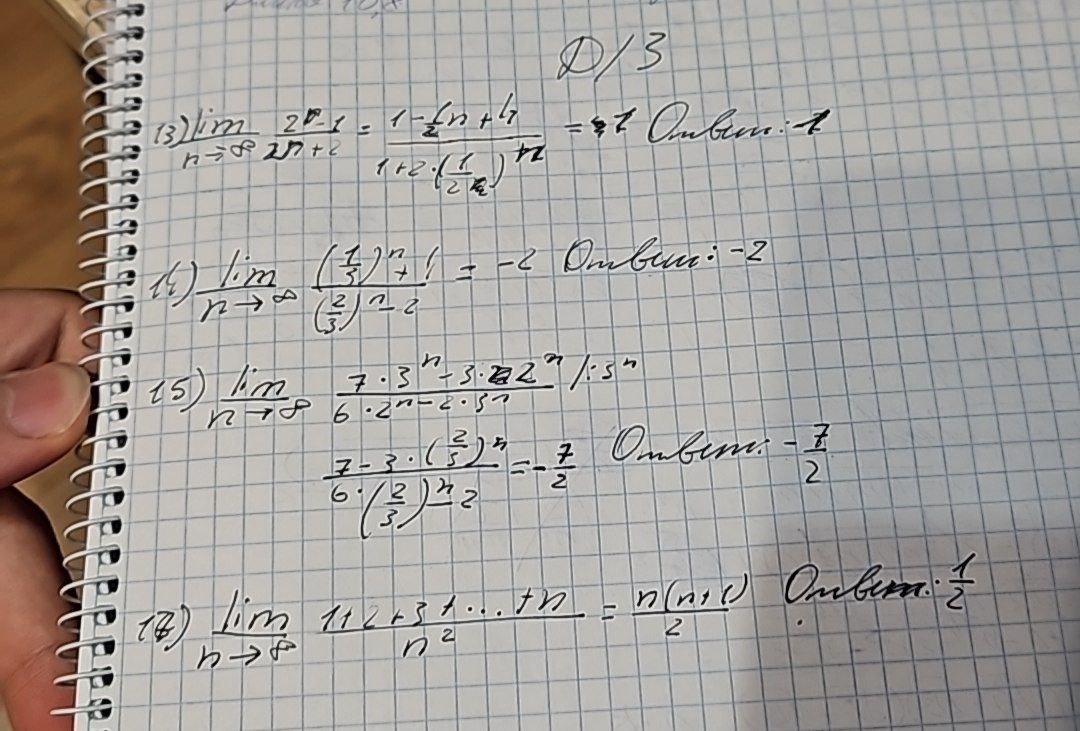 Д/З
13) lim n→∞ 2ⁿ-1 / 2ⁿ+2 = 1-1/2n+4 / 1+2·(1/2)ⁿ = 1 Ответ: 1
14) lim n→∞ (1/3)ⁿ+1 / (2/3)ⁿ-2 = -2 Ответ: -2
15) lim n→∞ 7·3ⁿ-3·2ⁿ / 6·2ⁿ-2·3ⁿ /:3ⁿ
7-3·(2/3)ⁿ / 6·(2/3)ⁿ-2 = -7/2 Ответ: -7/2
17) lim n→∞ 1+2+3+...+n / n² = n(n+1) / 2 Ответ: 1/2